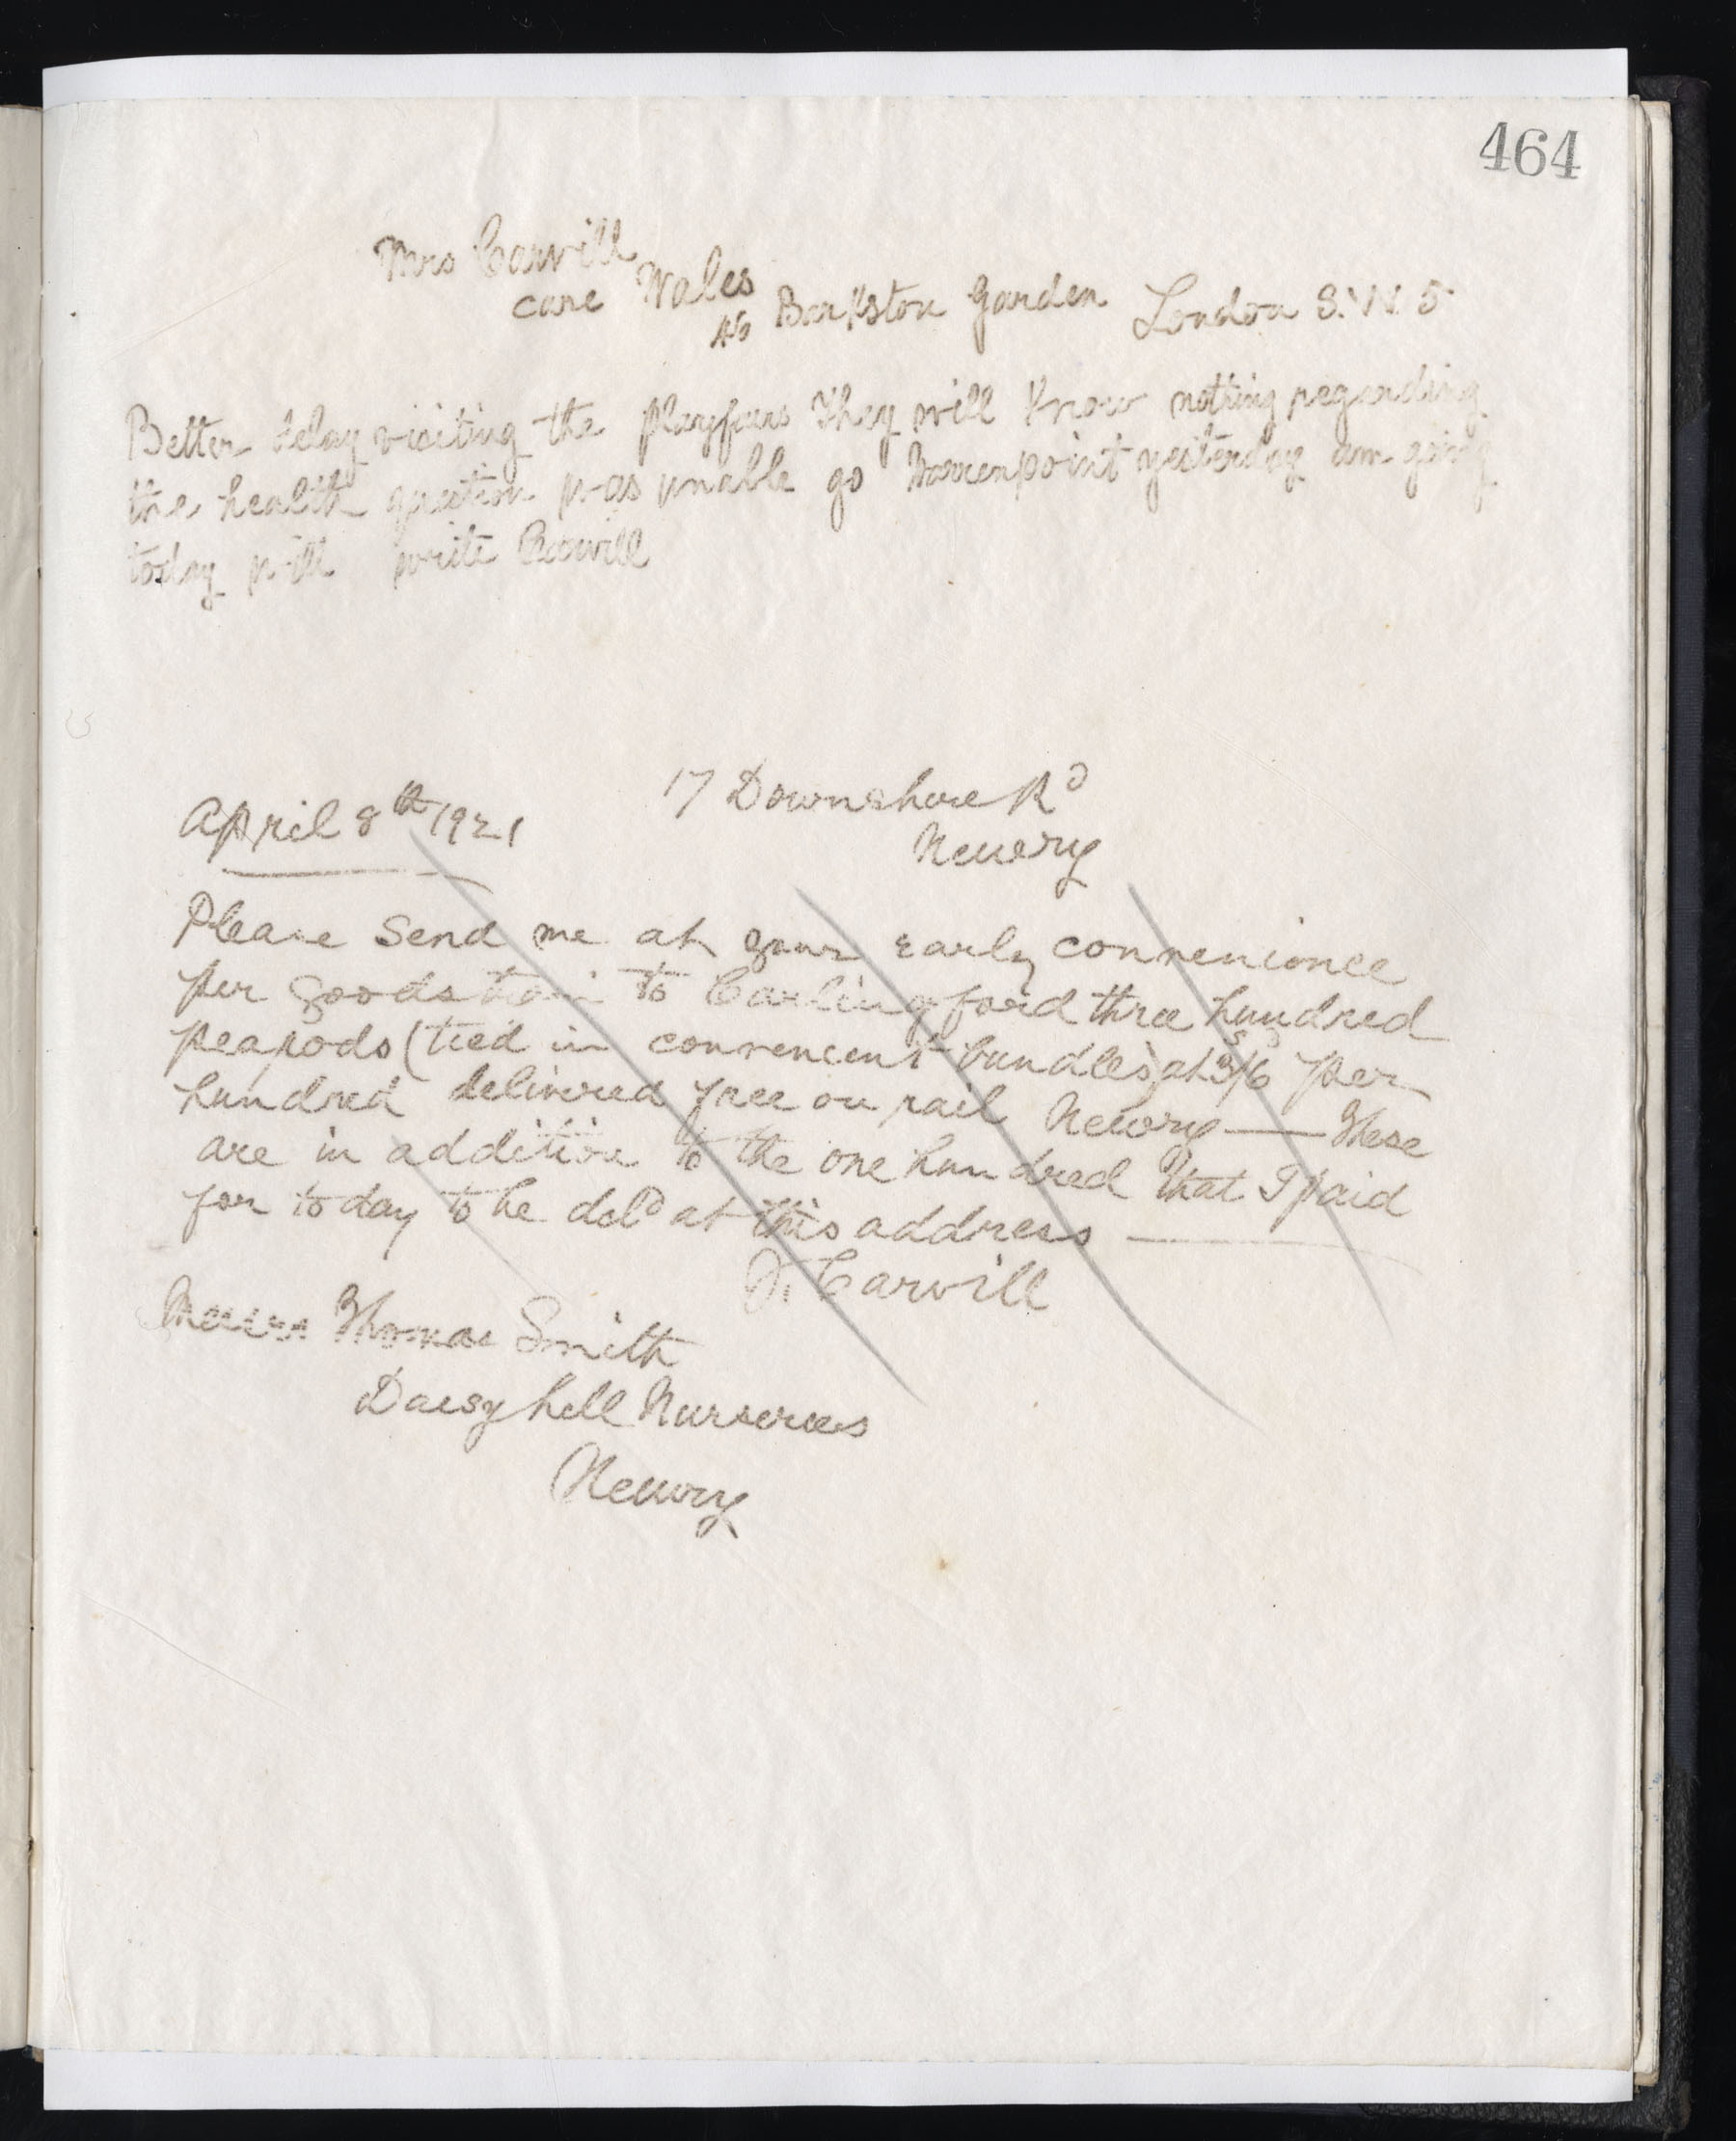 464
Mrs Carvill
care Wales
Barkston Garden London S.W. 5
Better delay visiting the playfairs They will know nothing regarding
the health question was unable go Warrenpoint yesterday am going
today will write Carvill
April 8th 1921
17 Downshire Rd
Newry
Please send me at your early convenience
per goods train to Carlingford three hundred
peapods (tied in convenient bundles) at /6 per
hundred delivered free on rail Newry — These
are in addition to the one hundred that I paid
for today to be deld at this address —
J. Carvill
Messrs Thomas Smith
Daisy hill Nurseries
Newry